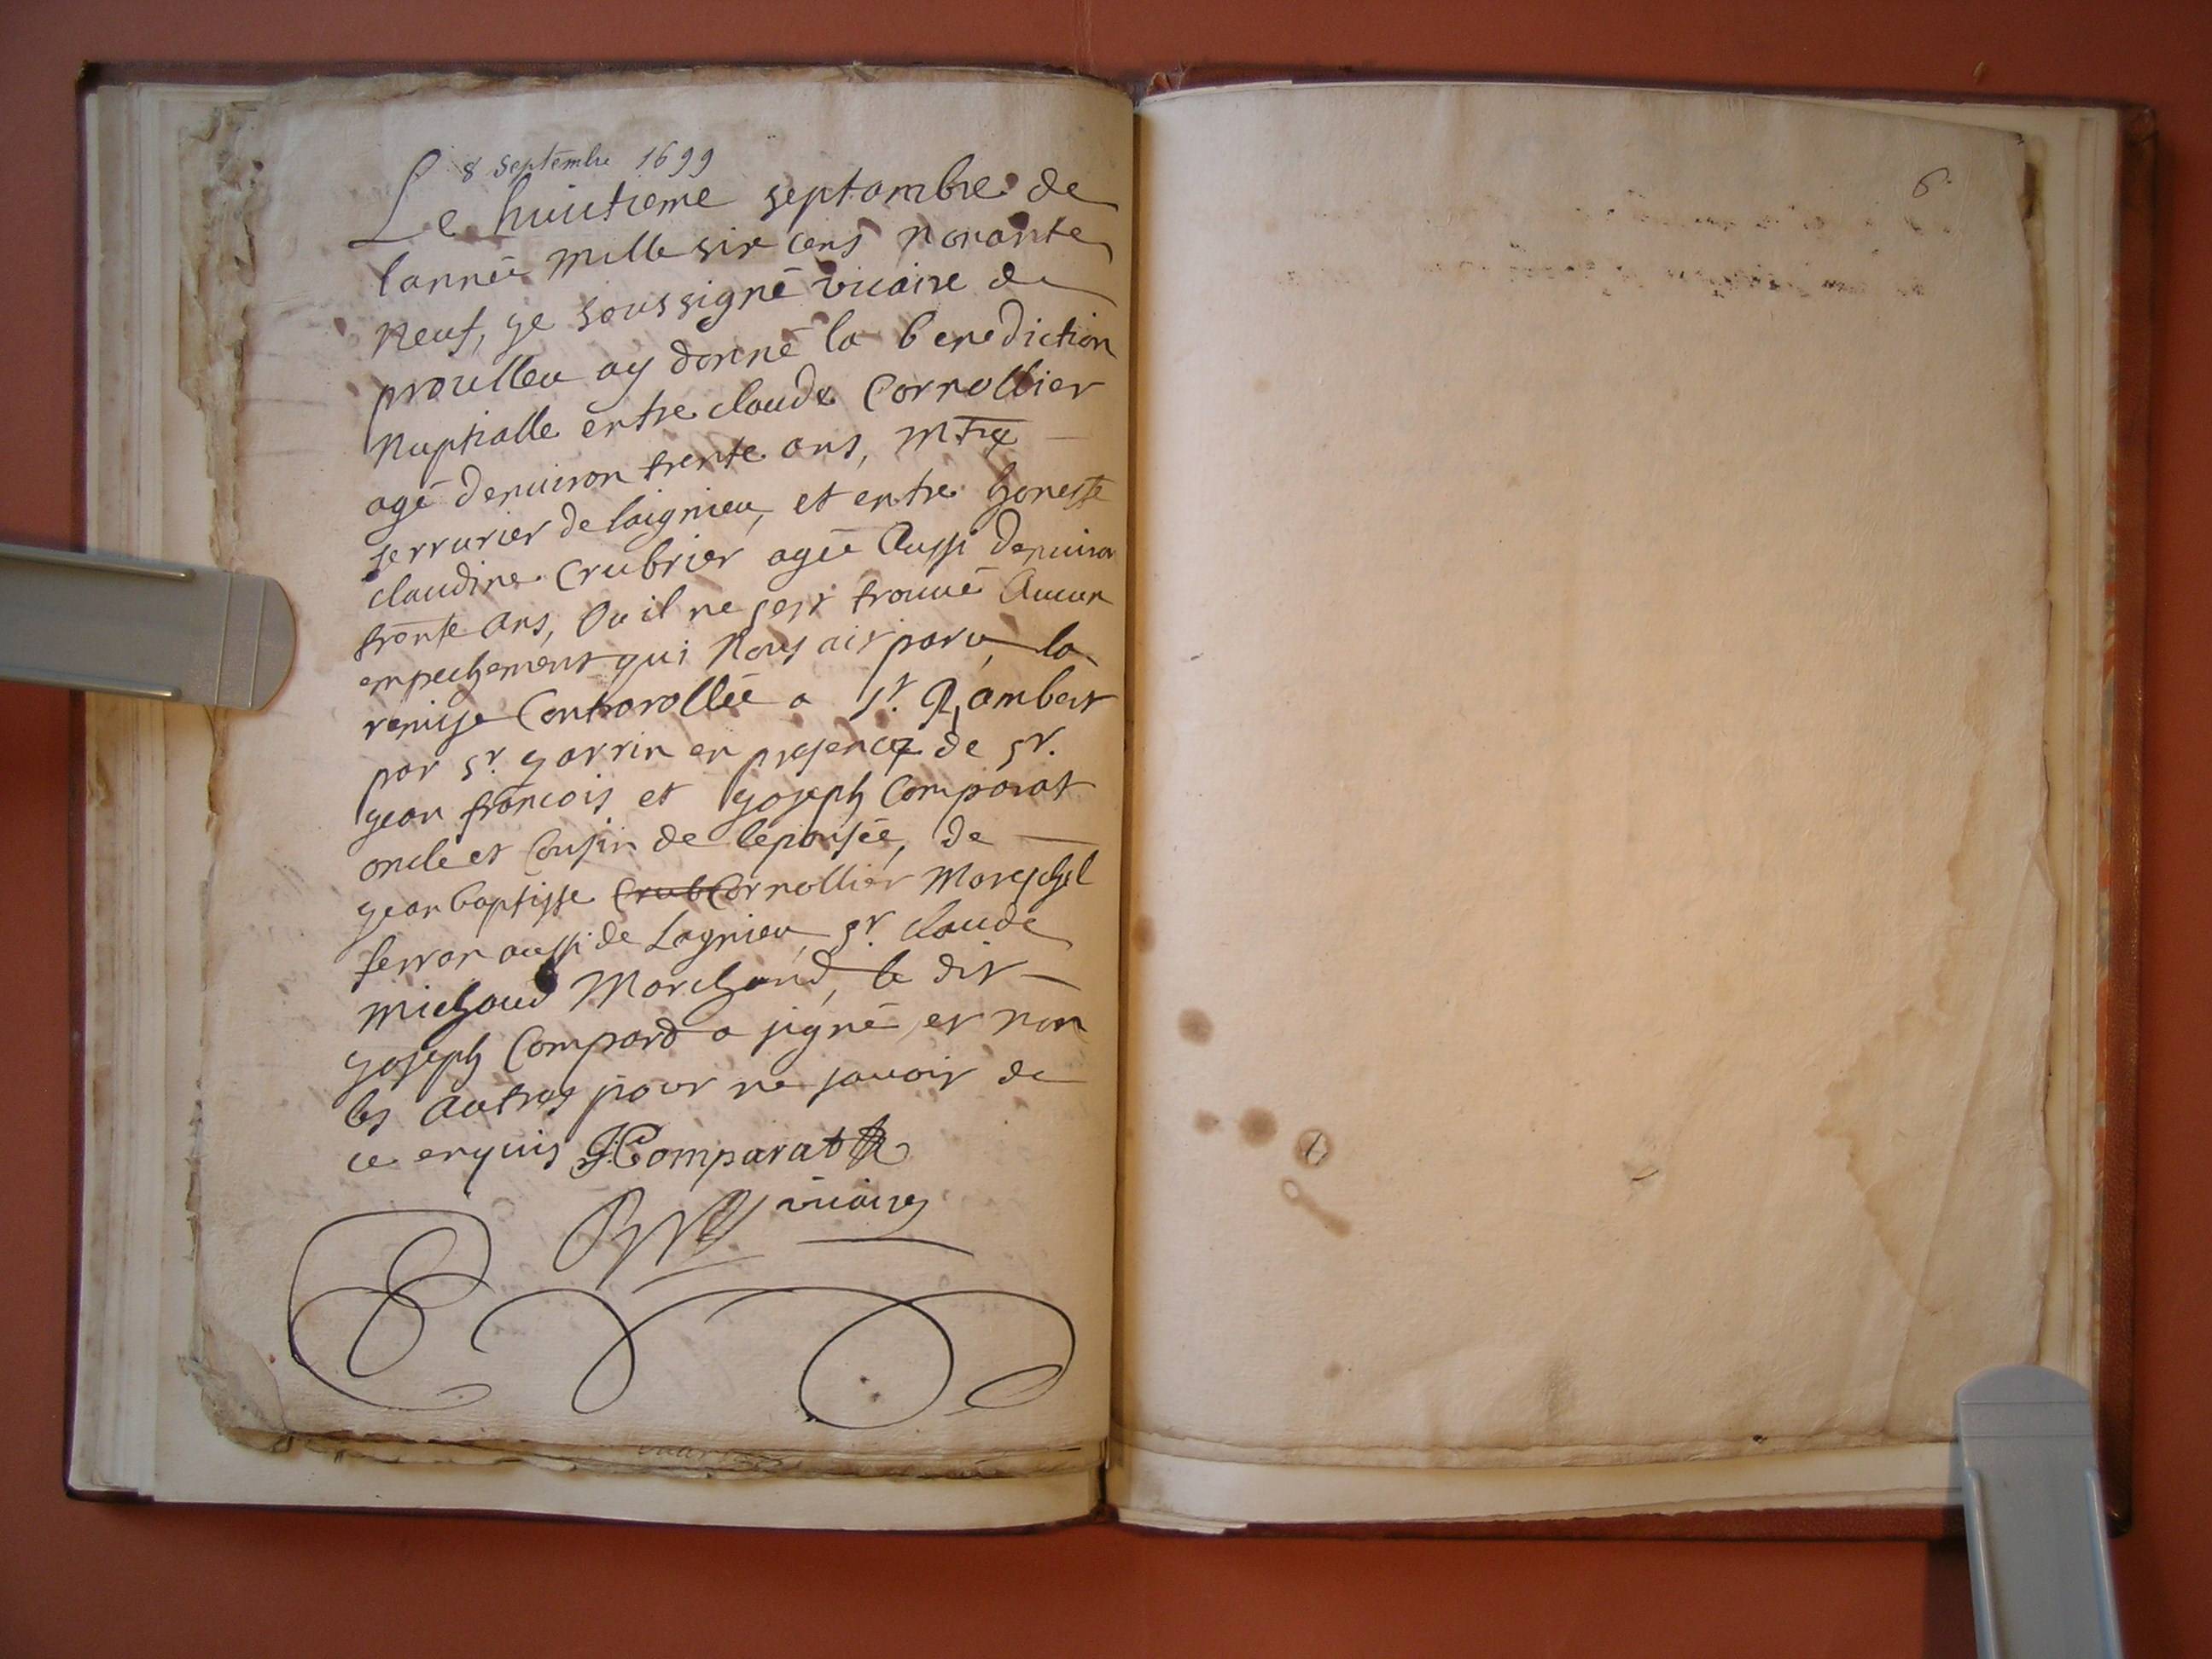 8 septembre 1699
Le huictieme septambre de
lannéé mille six cens nonante
neuf, je soussigné vicaire de
proulleu ay donné la benediction
nuptialle entre claude Cornollier
agé denuiron trente ans, mtre
serrurier de laignieu, et entre honeste
claudine Crubrier agéé Aussi denuiron
trante ans, Ou il ne sest trouué Aucun
empechement qui nous ait paru, la
remise Controrolléé a st. Rambert
par sr. garrin en presence de sr.
jean francois et joseph Comparat
oncle et Cousin de lepouséé, de
jean baptiste Crub Cornollier mareschal
ferran aussi de Lagnieu, sr. claude
michaud marchand, le dit
joseph Compard a signé et non
les autres pour ne sauoir de
ce enquis J Comparat
vicaire
6